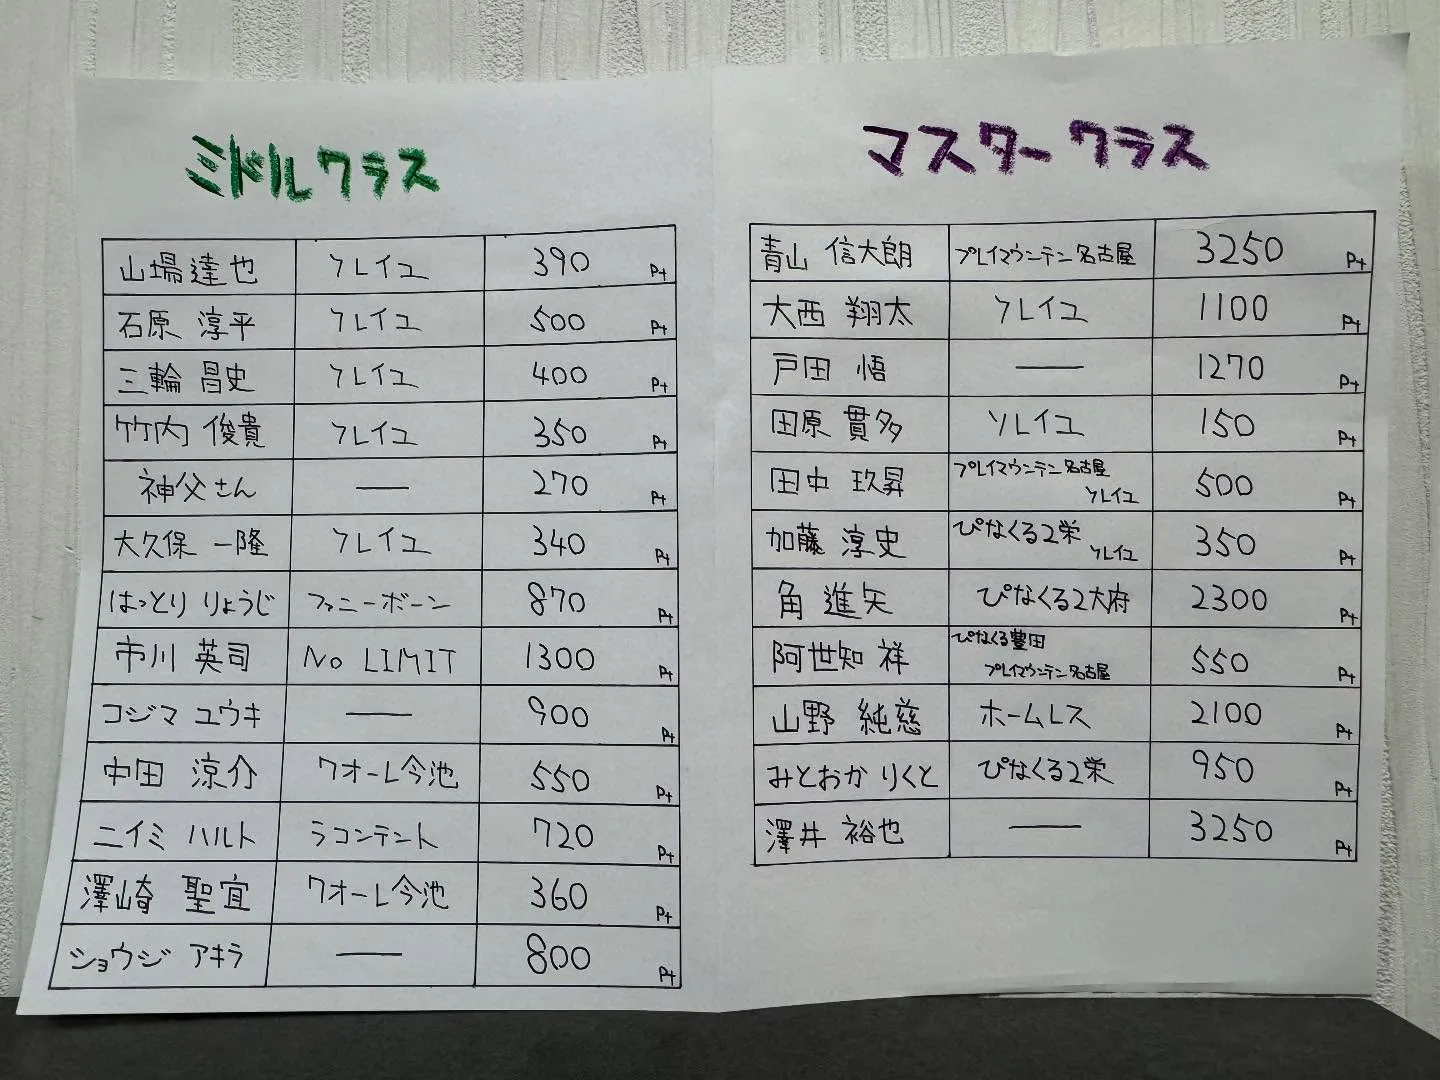 ミドルクラス
山場達也 ソレイユ 390 Pt
石原 淳平 ソレイユ 500 Pt
三輪 昌史 ソレイユ 400 Pt
竹内 俊貴 ソレイユ 350 Pt
神父さん — 270 Pt
大久保 一隆 ソレイユ 340 Pt
はっとり りょうじ ファニーボーン 870 Pt
市川 英司 No LIMIT 1300 Pt
コジマ ユウキ — 900 Pt
中田 涼介 クオーレ今池 550 Pt
ニイミ ハルト ラコンテント 720 Pt
澤崎 聖宜 クオーレ今池 360 Pt
ショウジ アキラ — 800 Pt
マスタークラス
青山 信大朗 プレイマウンテン名古屋 3250 Pt
大西 翔太 ソレイユ 1100 Pt
戸田 悟 — 1270 Pt
田原 貫多 ソレイユ 150 Pt
田中 玖昇 プレイマウンテン名古屋 500 Pt
ソレイユ
加藤 淳史 ぴなくる2栄 350 Pt
ソレイユ
角 進矢 ぴなくる2大府 2300 Pt
阿世知 祥 ぴなくる豊田 550 Pt
プレイマウンテン名古屋
山野 純慈 ホームレス 2100 Pt
みとおか りくと ぴなくる2栄 950 Pt
澤井 裕也 — 3250 Pt